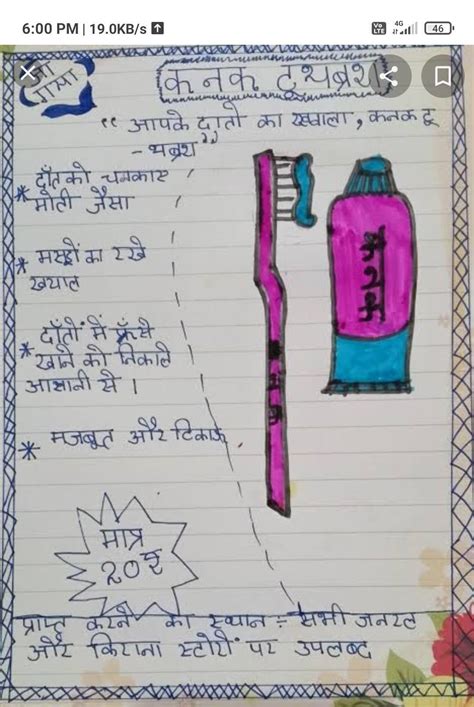 6:00 PM | 19.0KB/s
4G
46
आ
गया
कनक टूथब्रश
“ आपके दातो का रखवाला, कनक टू
- थब्रश ”
दाँत को चमकाए
* मोती जैसा
* मसूड़ों का रखे
ख्याल
दाँतों में फँसे
* खाने को निकाले
आसानी से ।
* मजबूत और टिकाऊ
मात्र
20 रु
कनक
कनक
प्राप्त करने का स्थान :- सभी जनरल
और किराना स्टोरों पर उपलब्द